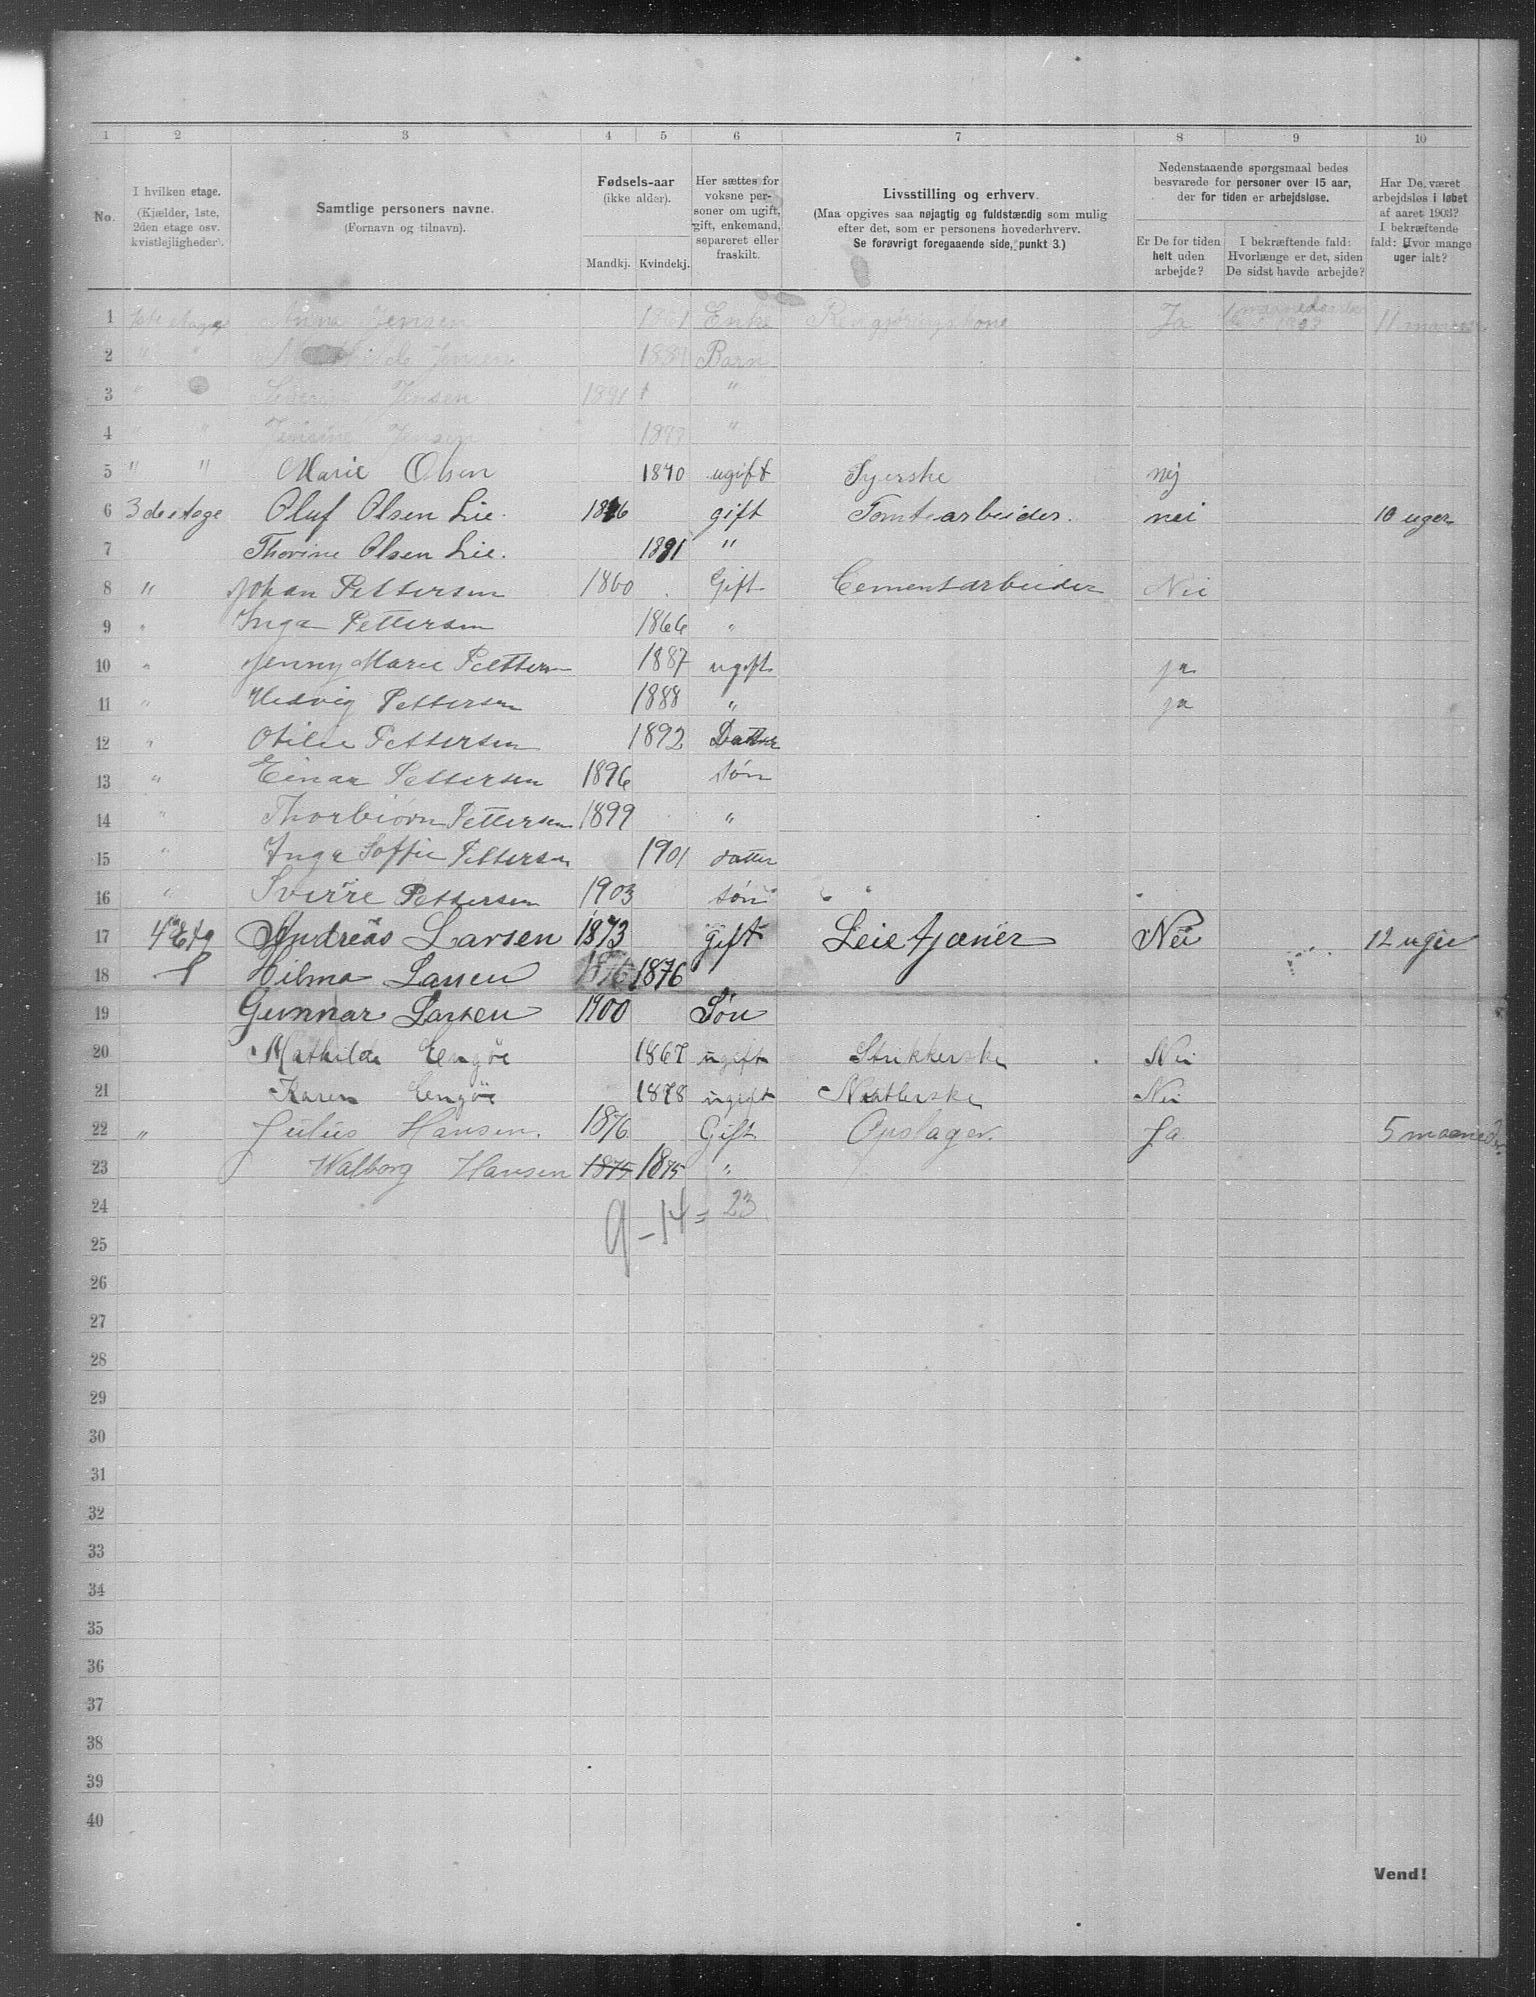 1 2 3 4 5 6 7 8 9 10
No.
I hvilken etage.
(Kjælder, 1ste,
2den etage osv.
kvistlejligheder).
Samtlige personers navne.
(Fornavn og tilnavn).
Fødsels-aar
(ikke alder).
Mandkj. Kvindekj.
Her sættes for
voksne per-
soner om ugift,
gift, enkemand,
separeret eller
fraskilt.
Livsstilling og erhverv.
(Maa opgives saa nøjagtig og fuldstændig som mulig
efter det, som er personens hovederhverv.
Se forøvrigt foregaaende side, punkt 3.)
Nedenstaaende spørgsmaal bedes
besvarede for personer over 15 aar,
der for tiden er arbejdsløse.
Er De for tiden
helt uden
arbejde?
I bekræftende fald:
Hvorlænge er det, siden
De sidst havde arbejde?
Har De været
arbejdsløs i løbet
af aaret 1903?
I bekræftende
fald: Hvor mange
uger ialt?
1 1ste etage Anna Jensen Enke Rengjøringskone Ja
2 " " Jensen Barn
3 " Jensen 1891 "
4 " " Jensen "
5 " " Marie Olsen 1840 ugift Syerske nej
6 3de etage Oluf Olsen Lie. gift Tomtearbeider. nei 10 uger
7 Thorine Olsen Lie. "
8 " Johan Pettersen 1860 Gift Cementarbeider Nei
9 " Inga Pettersen 1866 "
10 " Jenny Marie Pettersen 1887 ugift ja
11 " Hedvig Pettersen 1888 " ja
12 " Otilie Pettersen 1892 Datter
13 " Einar Pettersen 1896 søn
14 " Thorbiørn Pettersen 1899 "
15 " Inga Soffie Pettersen 1901 datter
16 " Sverre Pettersen 1903 søn
17 4de Etg Andreas Larsen 1873 gift Leietjæner Nei 12 uger
18 Hilma Larsen 1876 1876
19 Gunnar Larsen 1900 Søn
20 Mathilde Engöe 1867 ugift Strikkerske Nei
21 Karen Engöe 1878 ugift Naatlerske Nei
22 " Julius Hansen. 1876 Gift Opslager. Ja 5 maaneder
23 Walborg Hansen 1875 1875 "
24 9-14 = 23
25
26
27
28
29
30
31
32
33
34
35
36
37
38
39
40
Vend!